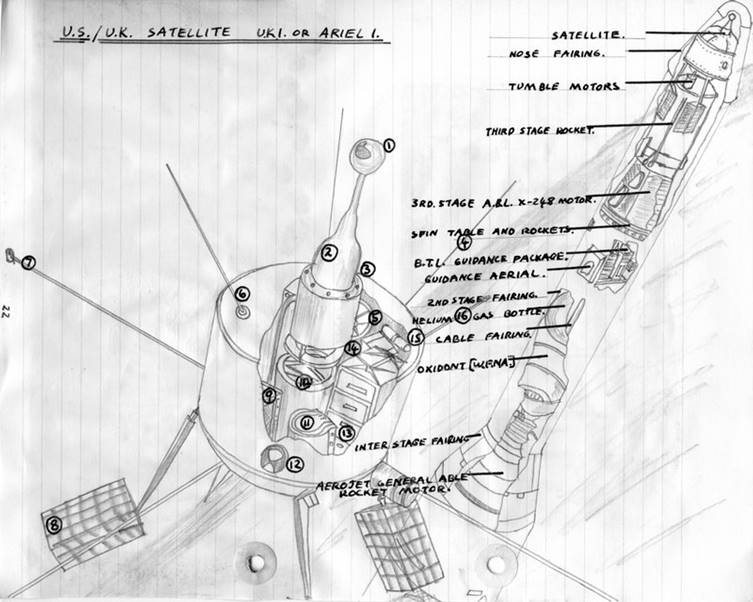 U.S./U.K. SATELLITE UK1. OR ARIEL 1.
SATELLITE.
NOSE FAIRING.
TUMBLE MOTORS
THIRD STAGE ROCKET.
3RD. STAGE A.B.L. X-248 MOTOR.
SPIN TABLE AND ROCKETS.
B.T.L. GUIDANCE PACKAGE.
GUIDANCE AERIAL.
2ND STAGE FAIRING.
HELIUM GAS BOTTLE.
CABLE FAIRING.
OXIDONT [WFNA]
INTER STAGE FAIRING
AEROJET GENERAL ABLE
ROCKET MOTOR.
1
2
3
4
5
6
7
8
9
10
11
12
13
14
15
16
22